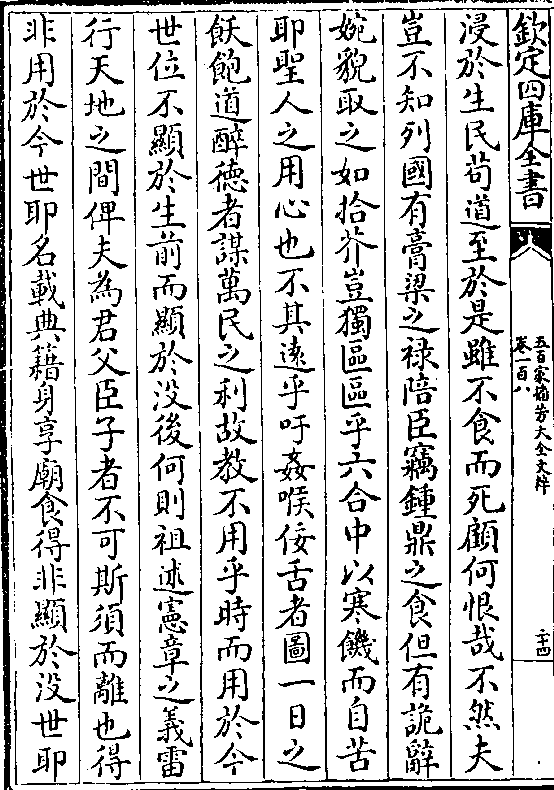 欽定四庫全書
五百家播芳大全文粹
卷一百八
二十四
浸於生民茍道至於是雖不食而死顧何恨哉不然夫
豈不知列國有膏粱之禄陪臣竊鍾鼎之食但有詭辭
婉貌取之如拾芥豈獨區區乎六合中以寒饑而自苦
耶聖人之用心也不其遠乎吁姦喉佞舌者圖一日之
飫飽道醉徳者謀萬民之利故教不用乎時而用於今
世位不顯於生前而顯於没後何則祖述憲章之義雷
行天地之間俾夫為君父臣子者不可斯須而離也得
非用於今世耶名載典籍身享廟食得非顯於没世耶